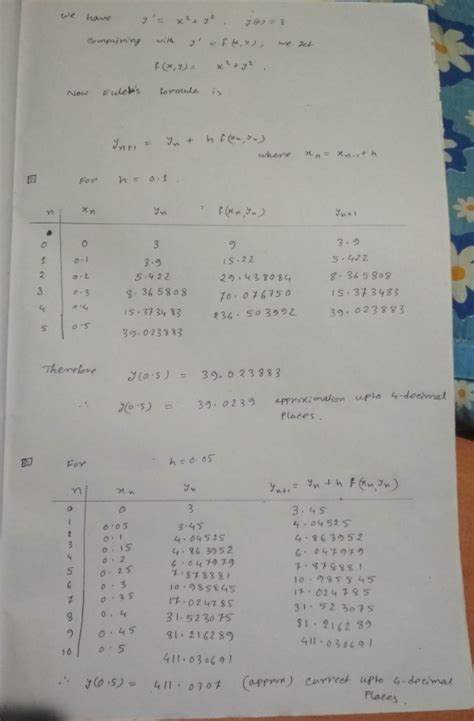 We have y' = x² + y² , y(0) = 3
Comparing with y' = f(x,y), we get
f(x,y) = x² + y² .
Now Euler's formula is
yₙ₊₁ = yₙ + h f(xₙ,yₙ)
where xₙ = xₙ₋₁ + h
For h = 0.1
n xₙ yₙ f(xₙ,yₙ) yₙ₊₁
0 0 3 9 3.9
1 0.1 3.9 15.22 5.422
2 0.2 5.422 29.438084 8.365808
3 0.3 8.365808 70.076750 15.373483
4 0.4 15.373483 236.503992 39.023883
5 0.5 39.023883
Therefore y(0.5) = 39.023883
∴ y(0.5) = 39.0239 approximation upto 4-decimal
places.
For h = 0.05
n xₙ yₙ yₙ₊₁ = yₙ + h f(xₙ,yₙ)
0 0 3 3.45
1 0.05 3.45 4.04525
2 0.1 4.04525 4.863952
3 0.15 4.863952 6.047979
4 0.2 6.047979 7.878881
5 0.25 7.878881 10.985845
6 0.3 10.985845 17.024785
7 0.35 17.024785 31.523075
8 0.4 31.523075 81.216289
9 0.45 81.216289 411.030691
10 0.5 411.030691
∴ y(0.5) = 411.0307 (approx) correct upto 4-decimal
places.